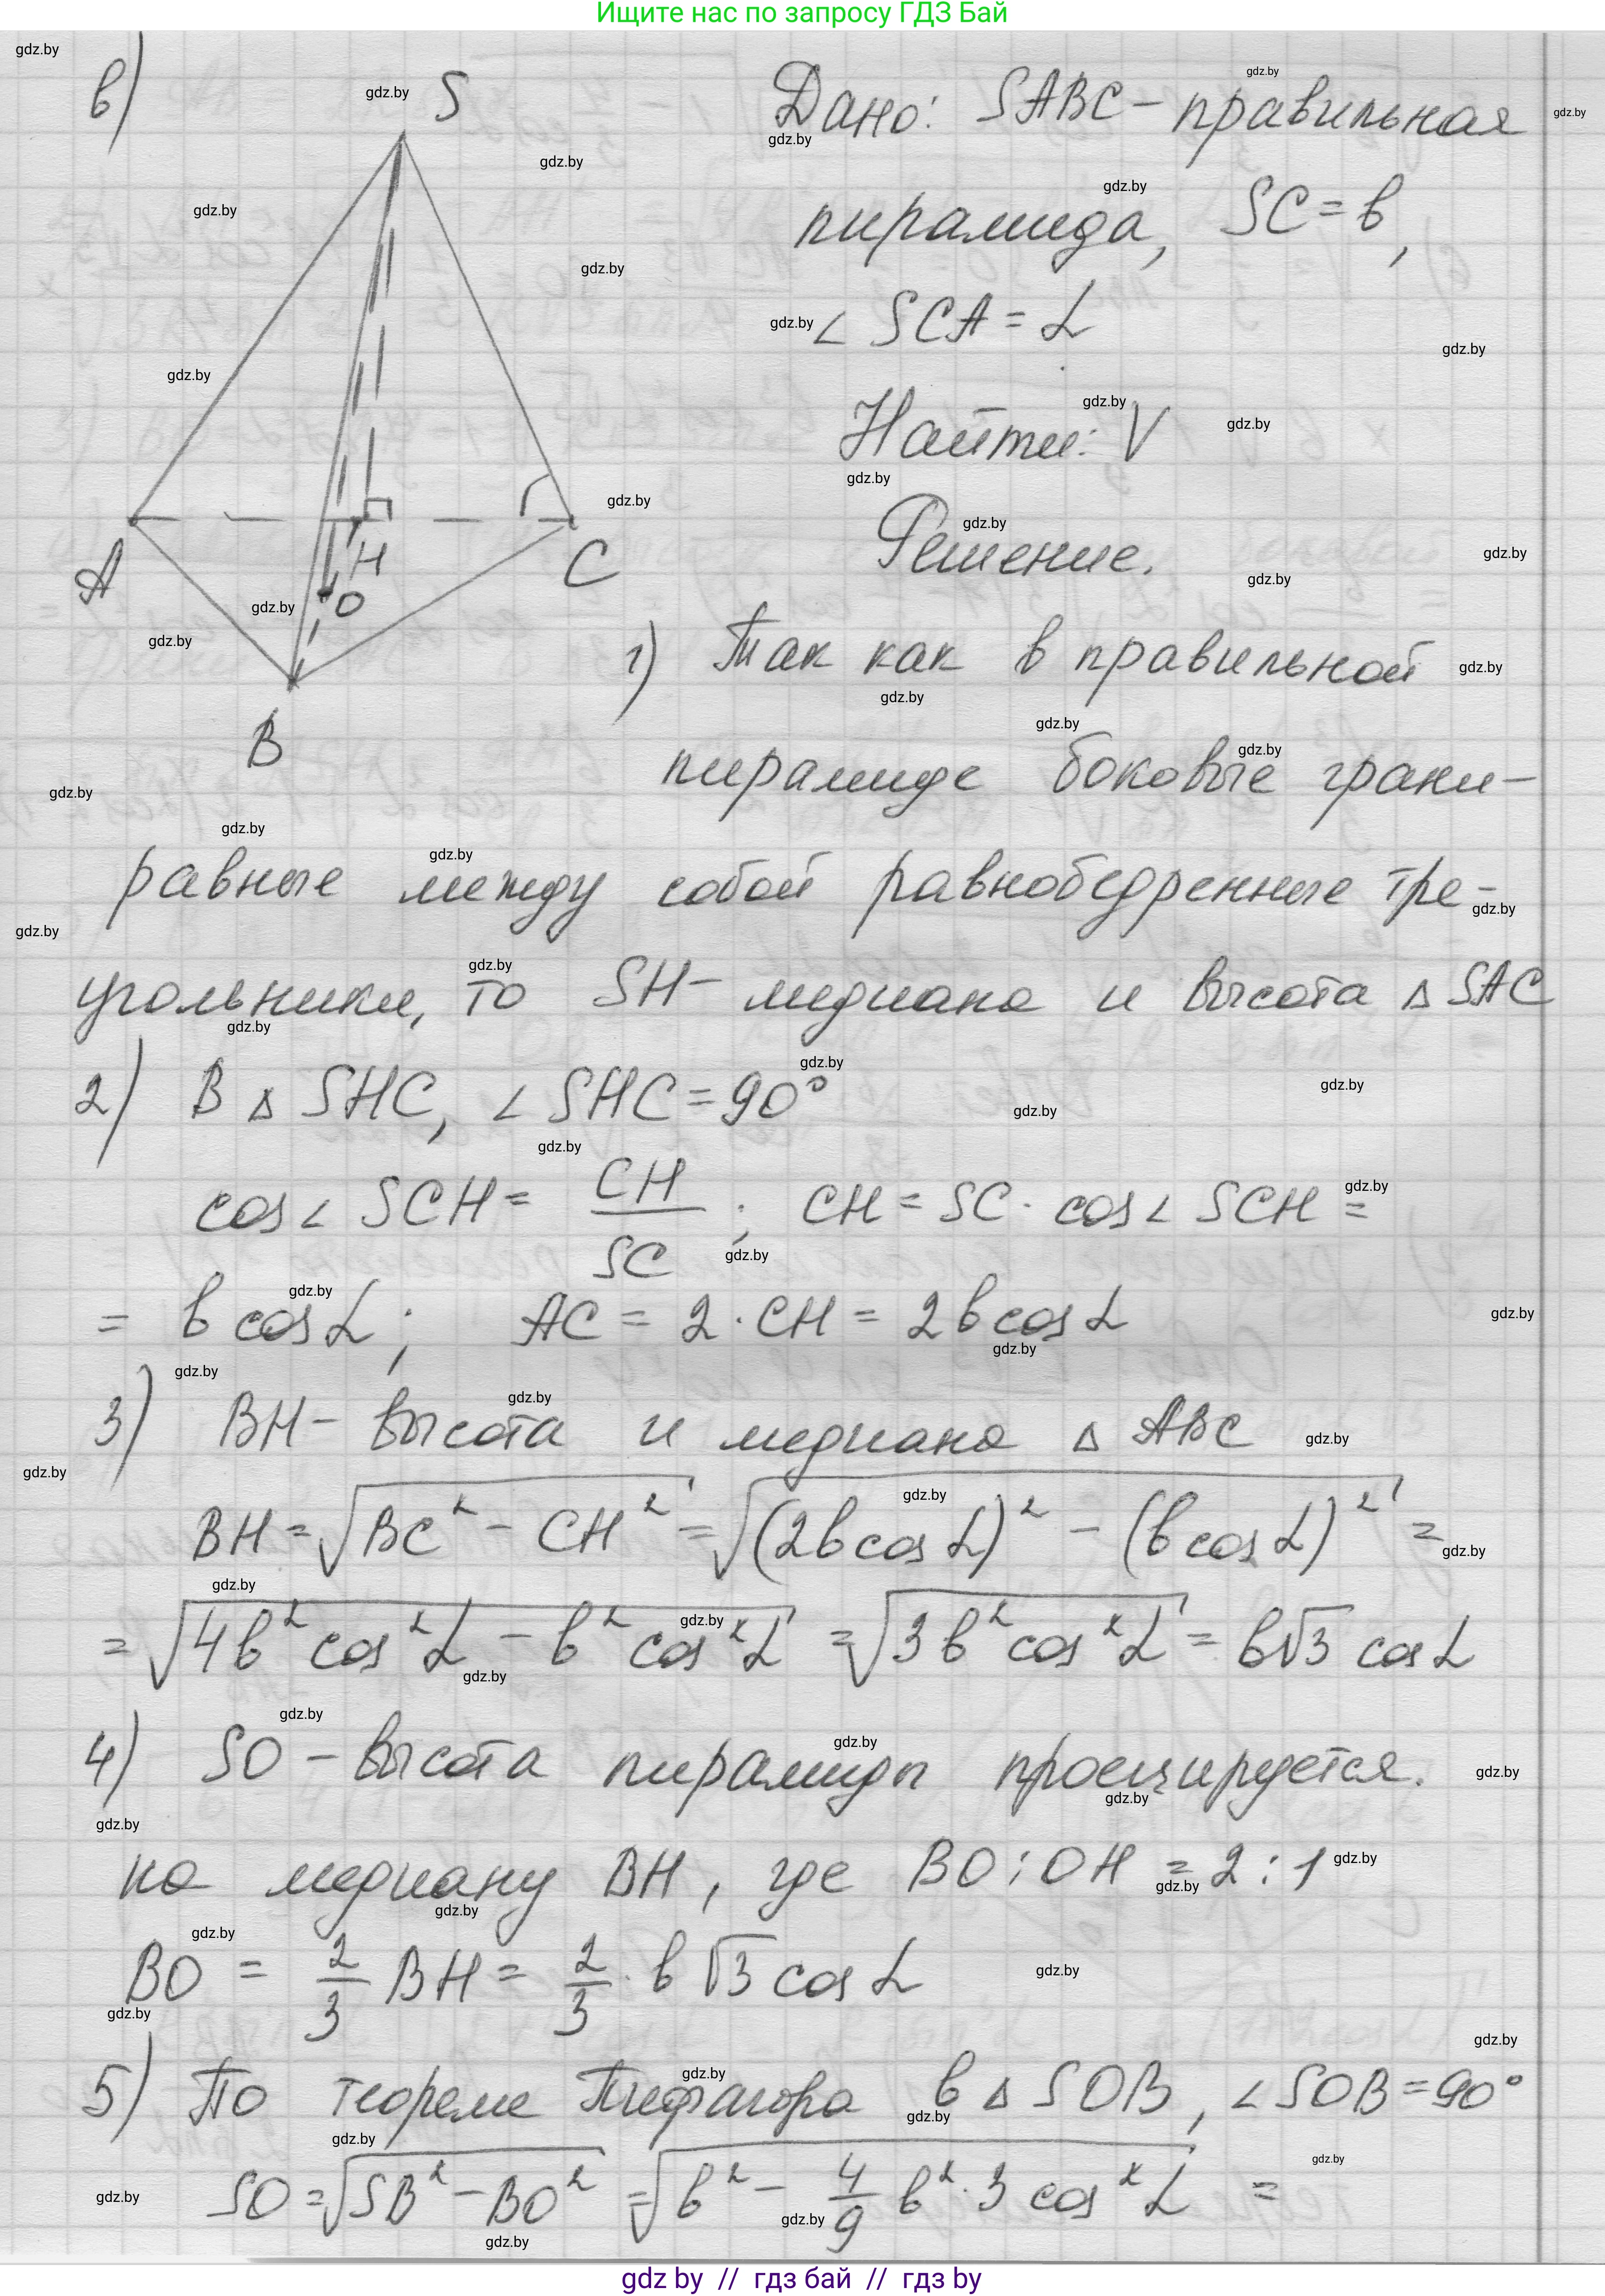 Ищите нас по запросу ГДЗ Бай
в)
S
A
H
C
O
B
Дано: SABC – правильная
пирамида, SC = b,
∠ SCA = α
Найти: V
Решение.
1) Так как в правильной
пирамиде боковые грани –
равные между собой равнобедренные тре-
угольники, то SH – медиана и высота Δ SAC
2) В Δ SHC, ∠ SHC = 90°
cos∠ SCH = CH/SC ; CH = SC · cos∠ SCH =
= b cos α ; AC = 2 · CH = 2b cos α
3) BH – высота и медиана Δ ABC
BH = √(BC² – CH²) = √((2b cos α)² – (b cos α)²) =
= √(4b² cos² α – b² cos² α) = √(3b² cos² α) = b√3 cos α
4) SO – высота пирамиды проецируется.
на медиану BH, где BO : OH = 2 : 1
BO = 2/3 BH = 2/3 · b √3 cos α
5) По теореме Пифагора в Δ SOB, ∠ SOB = 90°
SO = √(SB² – BO²) = √(b² – 4/9 b² · 3 cos² α) =
gdz by // гдз бай // гдз by